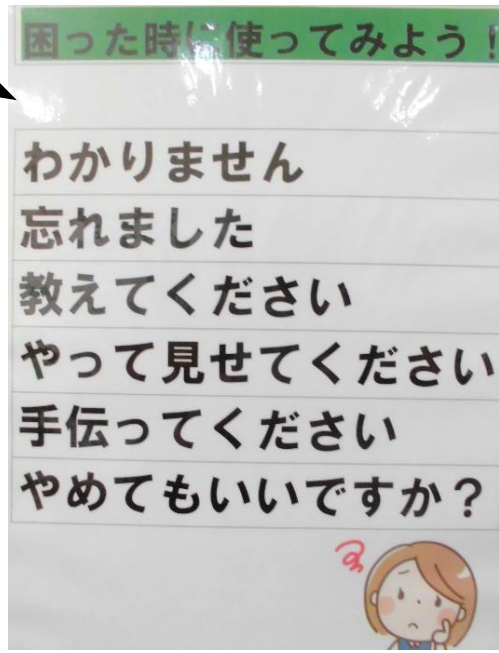 困った時に使ってみよう！
わかりません
忘れました
教えてください
やって見せてください
手伝ってください
やめてもいいですか？